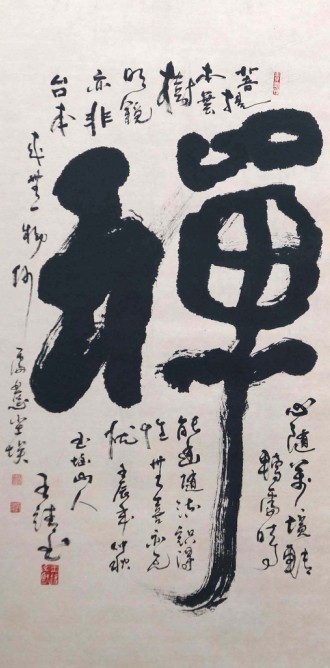 禪
菩提
本無
樹
明鏡
亦非
台本
來無一物何
處惹塵埃
心隨萬境轉
轉處實
能幽隨流認得
性無喜亦無
憂 壬辰年仲秋
山人
王
書